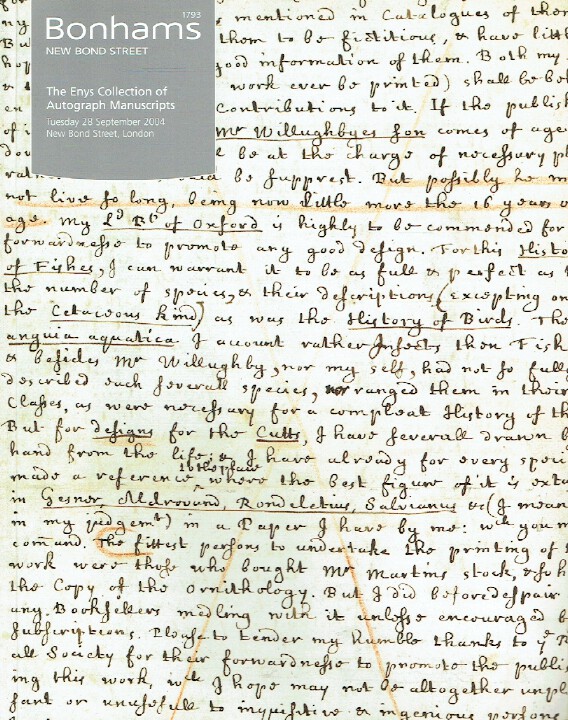 1793
Bonhams
NEW BOND STREET
The Enys Collection of
Autograph Manuscripts
Tuesday 28 September 2004
New Bond Street, London
mentioned in Catalogues of
them to be fictitious, & have
good information of them. Both my
work ever be printed) shall be
Contributions to it. If the
Mr Willughbyes son comes of age
be at the charge of necessary
be supprest. But possibly he
not live so long, being now little more the 16 years
age. My Ld Bp of Oxford is highly to be commended for
forwardnesse to promote any good design. For this
of Fishes, I can warrant it to be as full & perfect as
the number of species, & their descriptions (excepting
the Cetaceous kind) as was the History of Birds.
aquatica I account rather Insects then
& besides Mr Willughby, nor my self, had not so
described each severall species, arranged them in their
Classes, as were necessary for a compleat History of
But for designs for the Cutts, I have severall drawn
hand from the life; & I have already for every
to the place
made a reference where the best figure of it is
in Gesner, Aldrovand, Rondeletius, Salvianus &c (I mean
in my judgemt) in a Paper I have by me: wch you
comand. The fittest persons to undertake the printing of
work were those who bought Mr Martins stock,
the Copy of the Ornithology. But I did before despair
any Booksellers medling with it unlesse encouraged
Subscriptions. Please to tender my humble thanks to ye
all Society for their forwardnesse to promote the
ing this work, wch I hope may not be altogether
sant or unusefull to inquisitive & ingenious persons